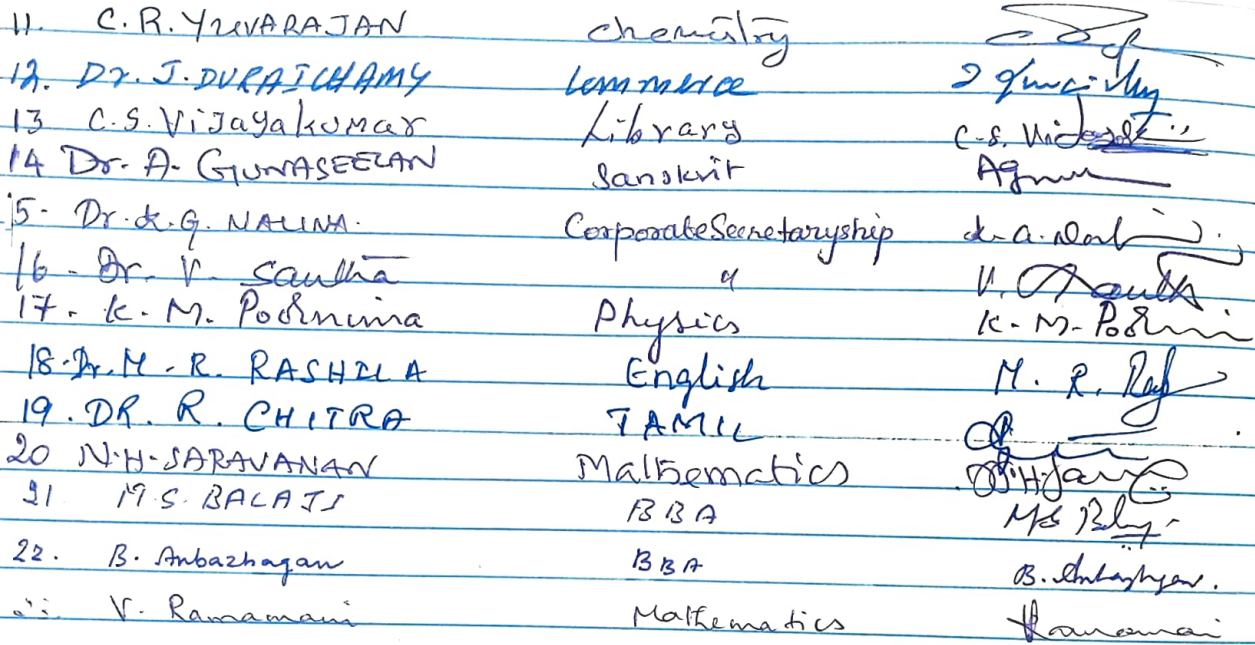 11. C.R. YUVARAJAN Chemistry
12. Dr. J. DURAICHAMY Commerce
13 C.S. Vijayakumar Library C.S.
14 Dr. A. GUNASEELAN Sanskrit
15- Dr. K.G. NALINA. Corporate Secretaryship
16 - Dr. V. Santha " V.
17. K. M. Poornima Physics K. M.
18. Dr. M. R. RASHILA English M. R.
19. DR. R. CHITRA TAMIL
20 N.H. SARAVANAN Mathematics
21 M.S. BALAJI BBA MS
22. B. Anbazhagan BBA B. Anbazhagan.
V. Ramamani Mathematics